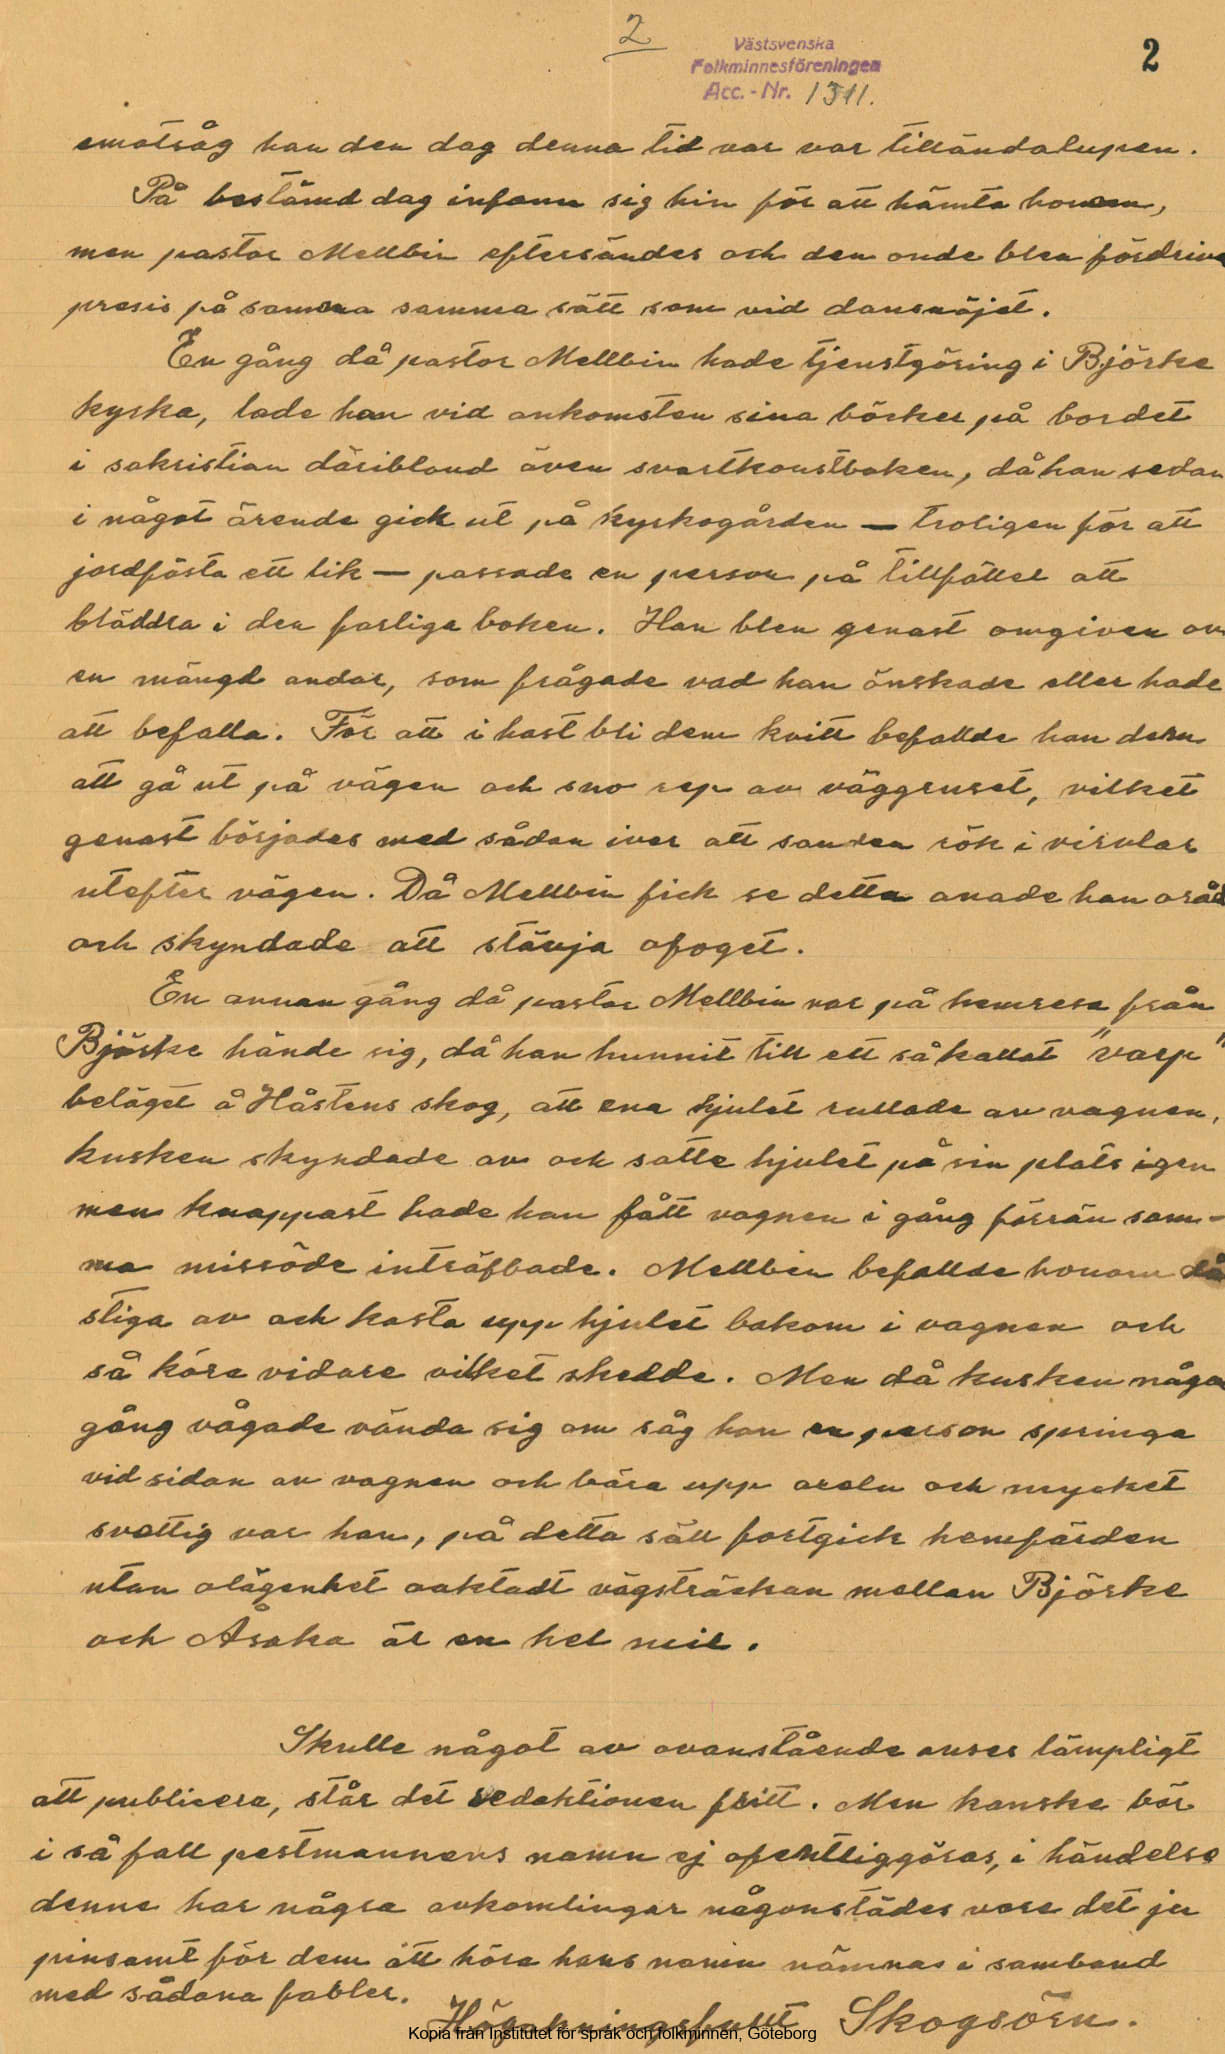 2
Västsvenska
Folkminnesföreningen
Acc.-Nr. 1311.
2
emotsåg han den dag denna tid var var tilländalupen.
På bestämd dag infann sig hin för att hämta honom,
men pastor Mellbin eftersändes och den onde blev fördriven
presis på samma samma sätt som vid dansnöjet.
En gång då pastor Mellbin hade tjenstgöring i Björke
kyrka, lade han vid ankomsten sina böcker på bordet
i sakristian däribland även svartkonstboken, då han sedan
i något ärende gick ut på kyrkogården — troligen för att
jordfästa ett lik — passade en person på tillfället att
bläddra i den farliga boken. Han blev genast omgiven av
en mängd andar, som frågade vad han önskade eller hade
att befalla. För att i hast bli dem kvitt befallde han dem
att gå ut på vägen och sno rep av väggruset, vilket
genast börjades med sådan iver att sanden rök i virvlar
utefter vägen. Då Mellbin fick se detta anade han oråd
och skyndade att stävja ofoget.
En annan gång då pastor Mellbin var på hemresa från
Björke hände sig, då han hunnit till ett så kallat "varp"
beläget å Håstens skog, att ena hjulet rullade av vagnen,
kusken skyndade av och satte hjulet på sin plats igen
men knappast hade han fått vagnen i gång förrän sam-
ma missöde inträffade. Mellbin befallde honom då
stiga av och kasta upp hjulet bakom i vagnen och
så köra vidare vilket skedde. Men då kusken någon
gång vågade vända sig om såg han en person springa
vid sidan av vagnen och bära upp axeln och mycket
svettig var han, på detta sätt fortgick hemfärden
utan olägenhet oaktadt vägsträckan mellan Björke
och Åsaka är en hel mil.
Skulle något av ovanstående anses lämpligt
att publicera, står det redaktionen fritt. Men kanske bör
i så fall pestmannens namn ej ofentliggöras, i händelse
denne har några avkomlingar någonstädes vore det ju
pinsamt för dem att höra hans namn nämnas i samband
med sådana fabler.
Skogsörn.
Kopia från Institutet för språk och folkminnen, Göteborg